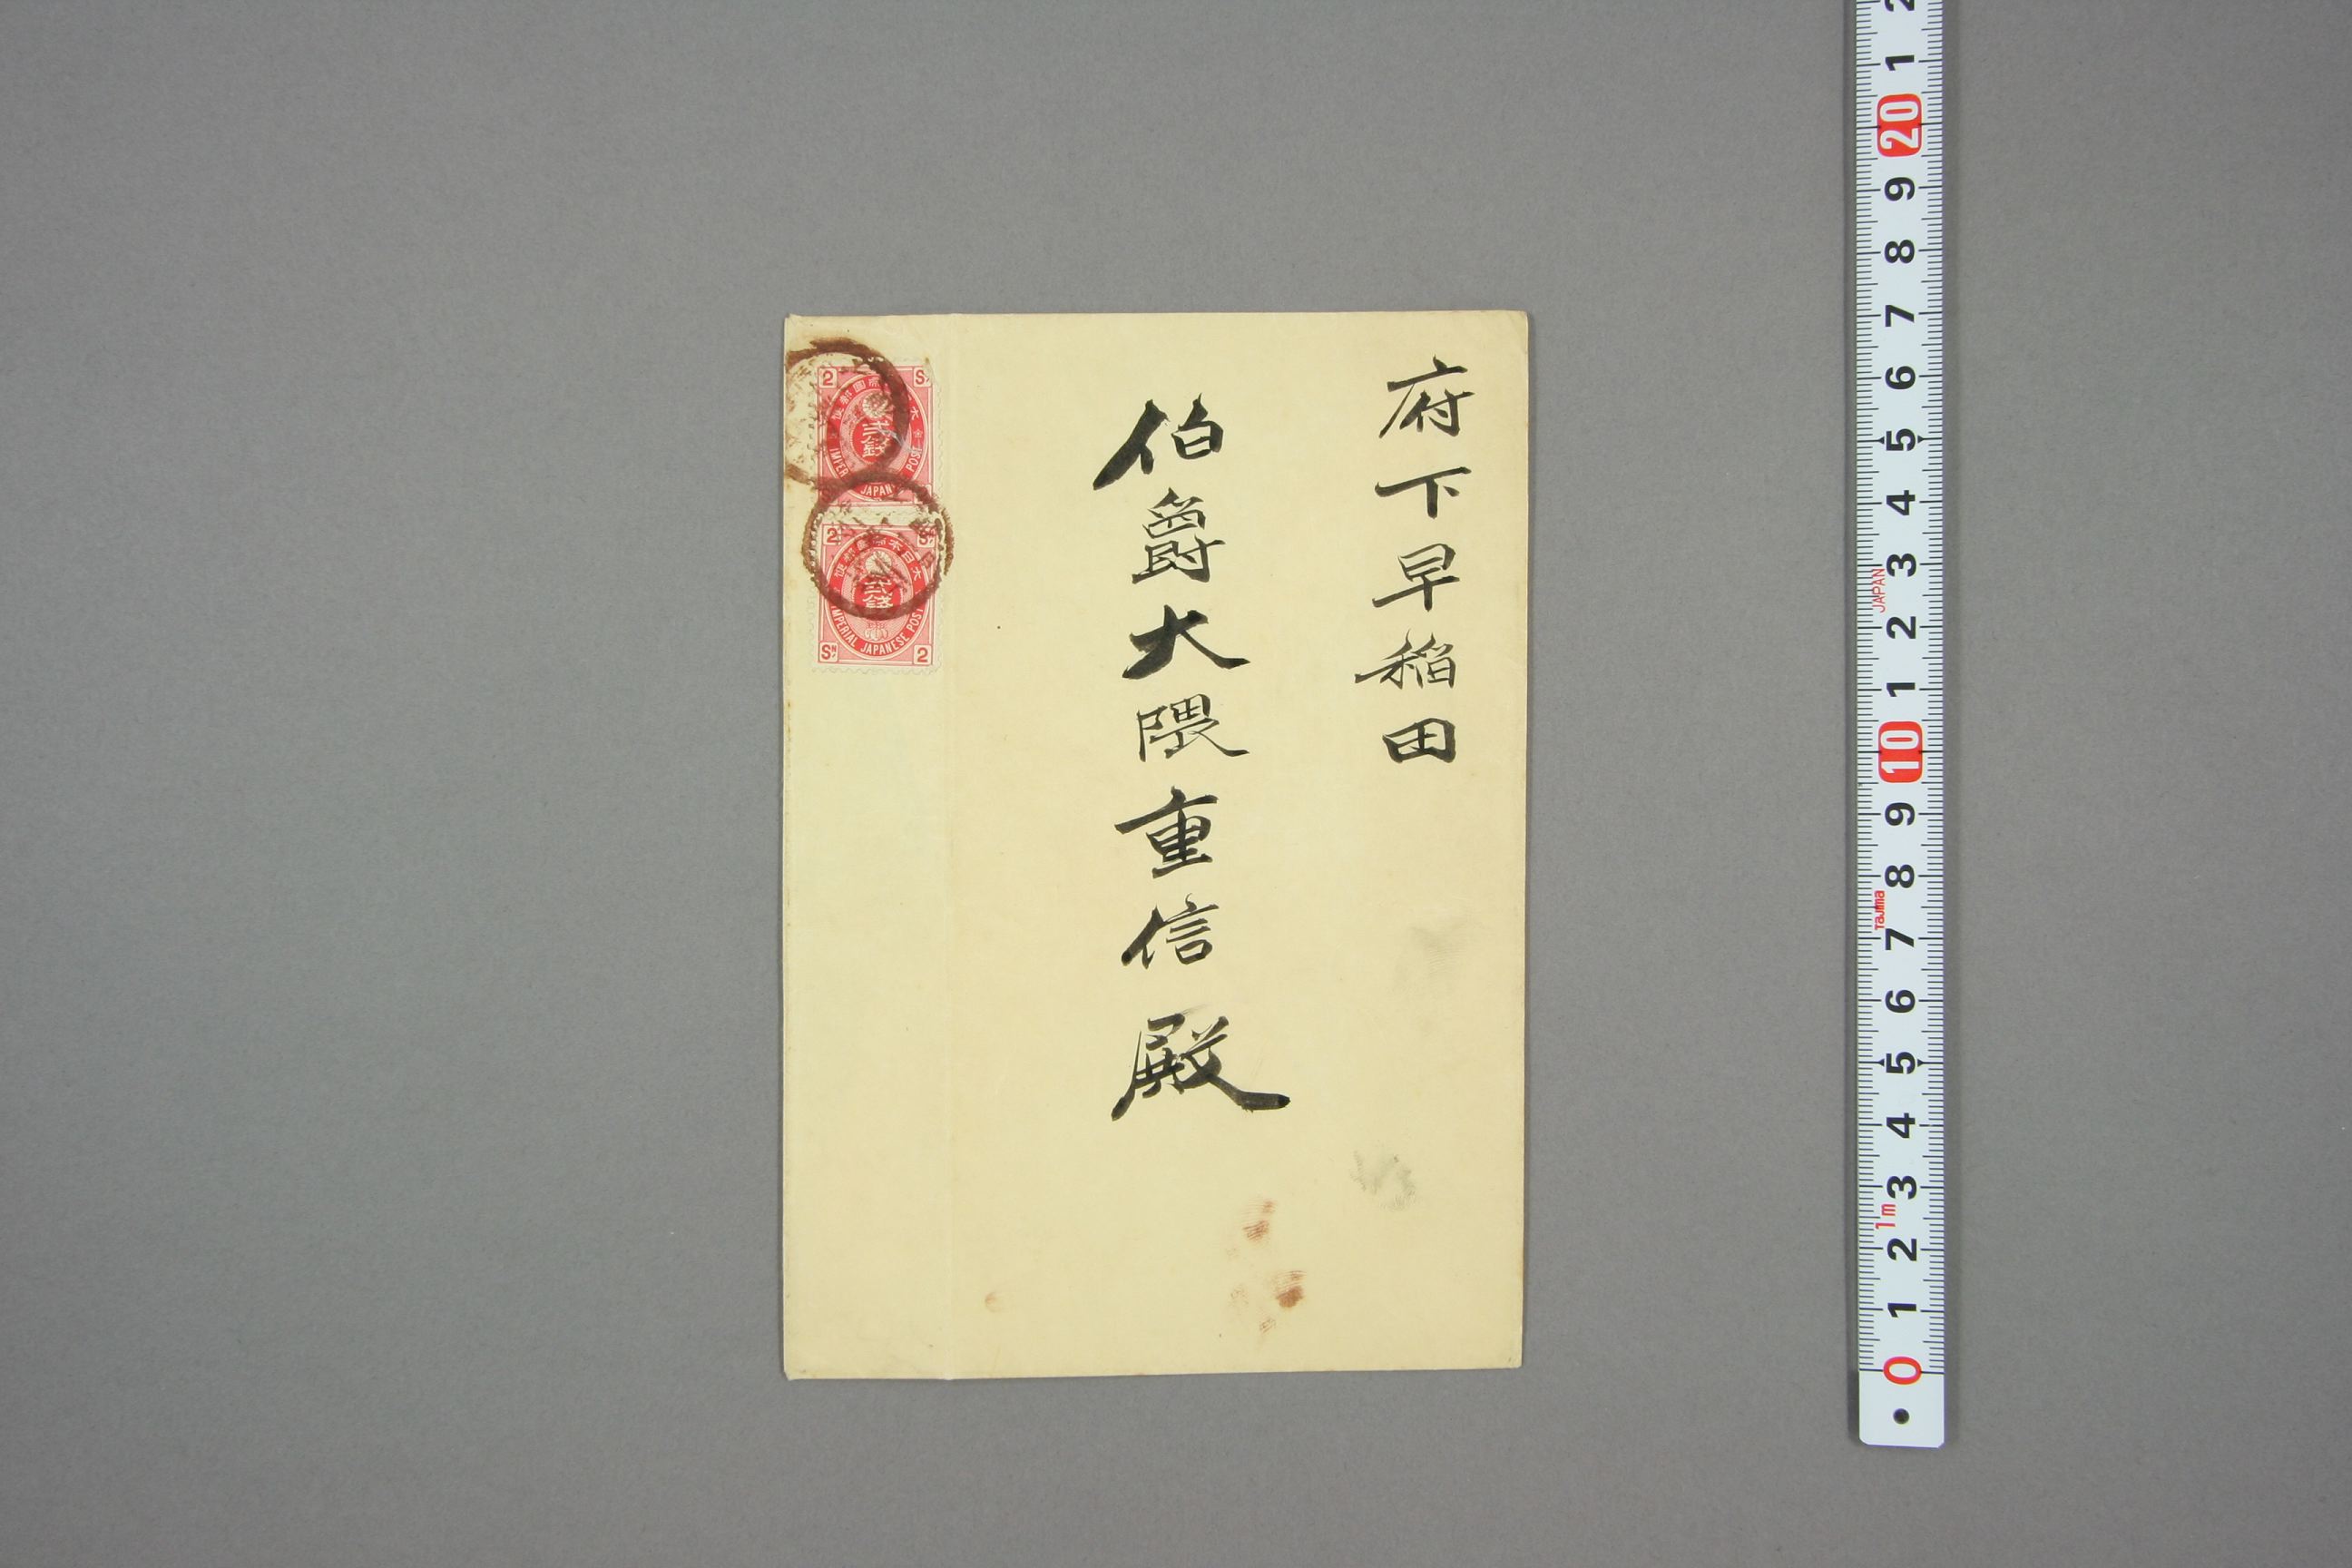 府下早稲田
伯爵大隈重信殿
2 SN
弐銭
JAPAN
POST
2 SN
大日本帝國郵便
弐銭
IMPERIAL JAPANESE POST
SN 2
2
1
20
9
8
7
6
5
4
3
JAPAN
2
1
10
9
8
Tajima
7
6
5
4
3
1m
2
1
0